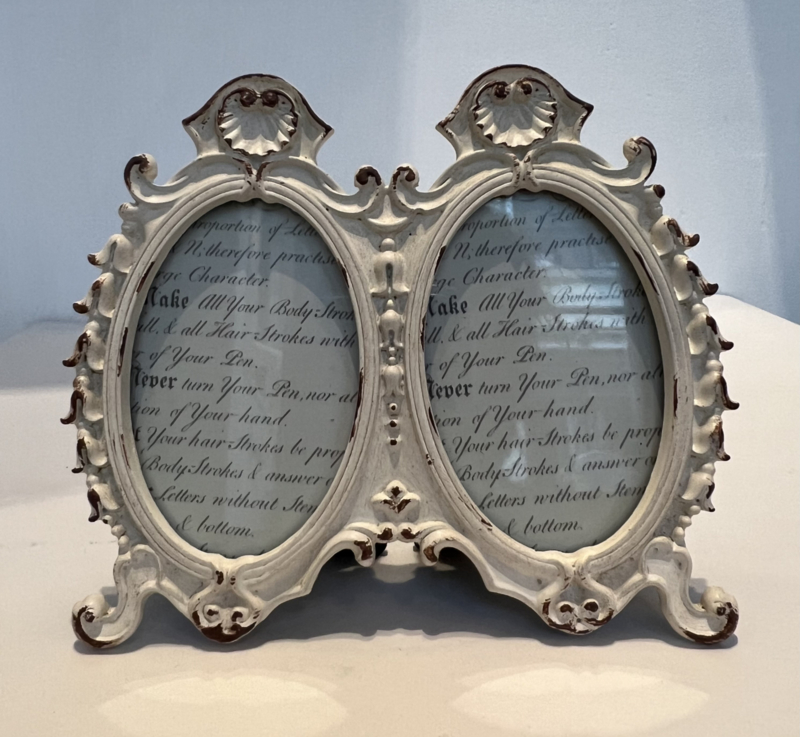 roportion of Lette
N, therefore practise
ge Character.
Make All Your Body-Strok
ll. & all Hair-Strokes with
of Your Pen.
Never turn Your Pen, nor al
ion of Your hand.
t Your hair-Strokes be prop
Body-Strokes & answer o
Letters without Stem
& bottom.
roportion of Lette
N, therefore practise
ge Character.
Make All Your Body-Stroke
ll. & all Hair-Strokes with
of Your Pen.
Never turn Your Pen, nor al
ion of Your hand.
Your hair-Strokes be prop
Body-Strokes & answer o
Letters without Stem
& bottom.